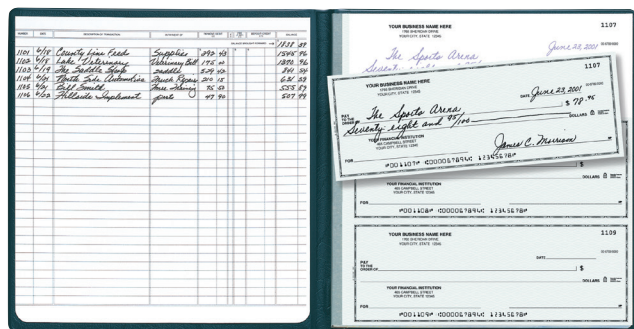 NUMBER DATE DESCRIPTION OF TRANSACTION BALANCE
1838 39
1101 6/18 County Line Feeds Supplies 292 43 1545 96
1102 6/18 Lake Veterinary Veterinary Bill 175 00 1370 96
1103 6/19 The Saddle Shop saddle 529 42 841 54
1104 6/21 North Side Automotive Truck Repair 210 15 631 39
1105 6/21 Bill Smith 75 50 555 89
1106 6/22 Hillside Implement 47 90 507 99
YOUR BUSINESS NAME HERE 1107
1760 SHERIDAN DRIVE
YOUR CITY, STATE 12345
June 23, 2001
The Sports Arena
Seventy
YOUR BUSINESS NAME HERE 1107
1760 SHERIDAN DRIVE
YOUR CITY, STATE 12345
DATE June 23, 2001
PAY TO THE ORDER OF The Sports Arena $ 78.95
Seventy eight and 95/100 DOLLARS
YOUR FINANCIAL INSTITUTION
400 CAMPBELL STREET
YOUR CITY, STATE 12345
FOR James C. Morrison
⑈001107⑈ ⑆000067894⑆ 12345678⑈
$
DOLLARS
YOUR FINANCIAL INSTITUTION
400 CAMPBELL STREET
YOUR CITY, STATE 12345
FOR
⑈001108⑈ ⑆000067894⑆ 12345678⑈
YOUR BUSINESS NAME HERE 1109
1760 SHERIDAN DRIVE
YOUR CITY, STATE 12345
DATE
PAY TO THE ORDER OF $
DOLLARS
YOUR FINANCIAL INSTITUTION
400 CAMPBELL STREET
YOUR CITY, STATE 12345
FOR
⑈001109⑈ ⑆000067894⑆ 12345678⑈